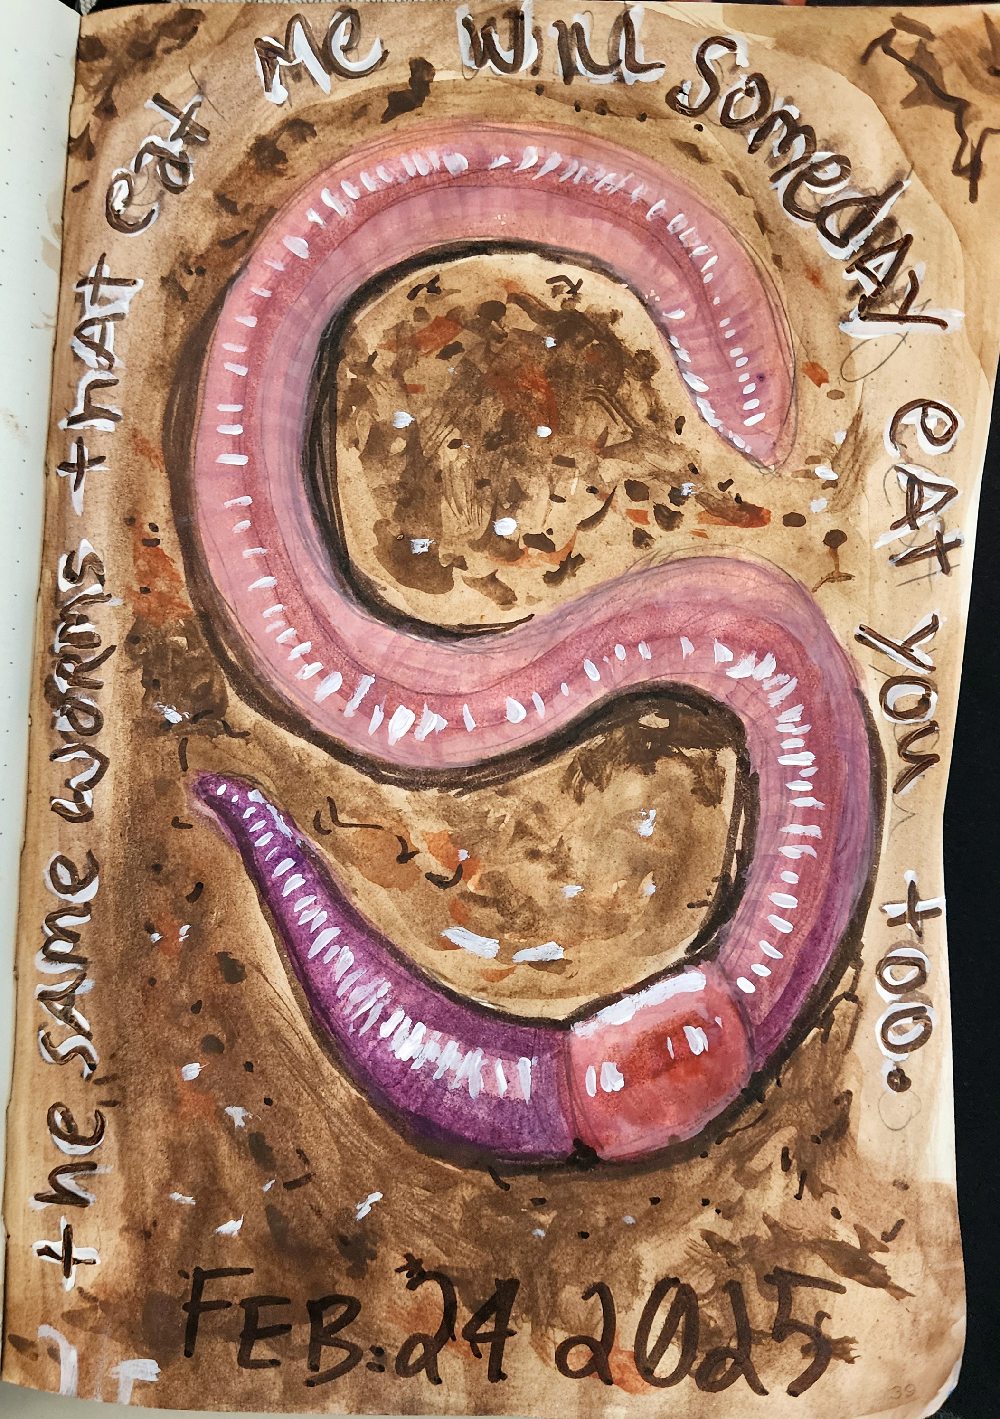 the same worms that eat me will someday eat you too.
FEB. 24 2025
JT
39